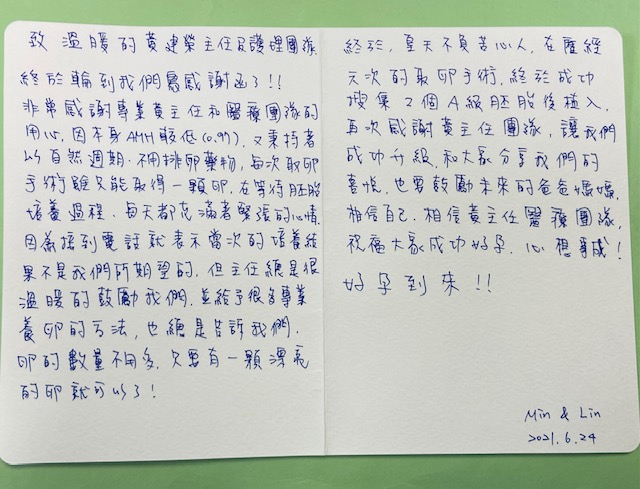 致 溫暖的黃建榮主任及護理團隊
終於輪到我們寫感謝函了!!
非常感謝專業黃主任和醫療團隊的
用心,因本身AMH較低(0.97),又秉持著
以自然週期.不用排卵藥物,每次取卵
手術雖只能取得一顆卵,在等待胚胎
培養過程.每天都充滿著緊張的心情,
因為接到電話就表示當次的培養結
果不是我們所期望的,但主任總是很
溫暖的鼓勵我們,並給予很多專業
養卵的方法,也總是告訴我們,
卵的數量不用多,只要有一顆漂亮
的卵就可以了!
終於,皇天不負苦心人,在歷經
六次的取卵手術,終於成功
搜集2個A級胚胎後植入,
再次感謝黃主任團隊,讓我們
成功升級,和大家分享我們的
喜悅,也要鼓勵未來的爸爸媽媽,
相信自己.相信黃主任醫療團隊,
祝福大家成功好孕.心想事成!
好孕到來!!
Min & Lin
2021.6.24